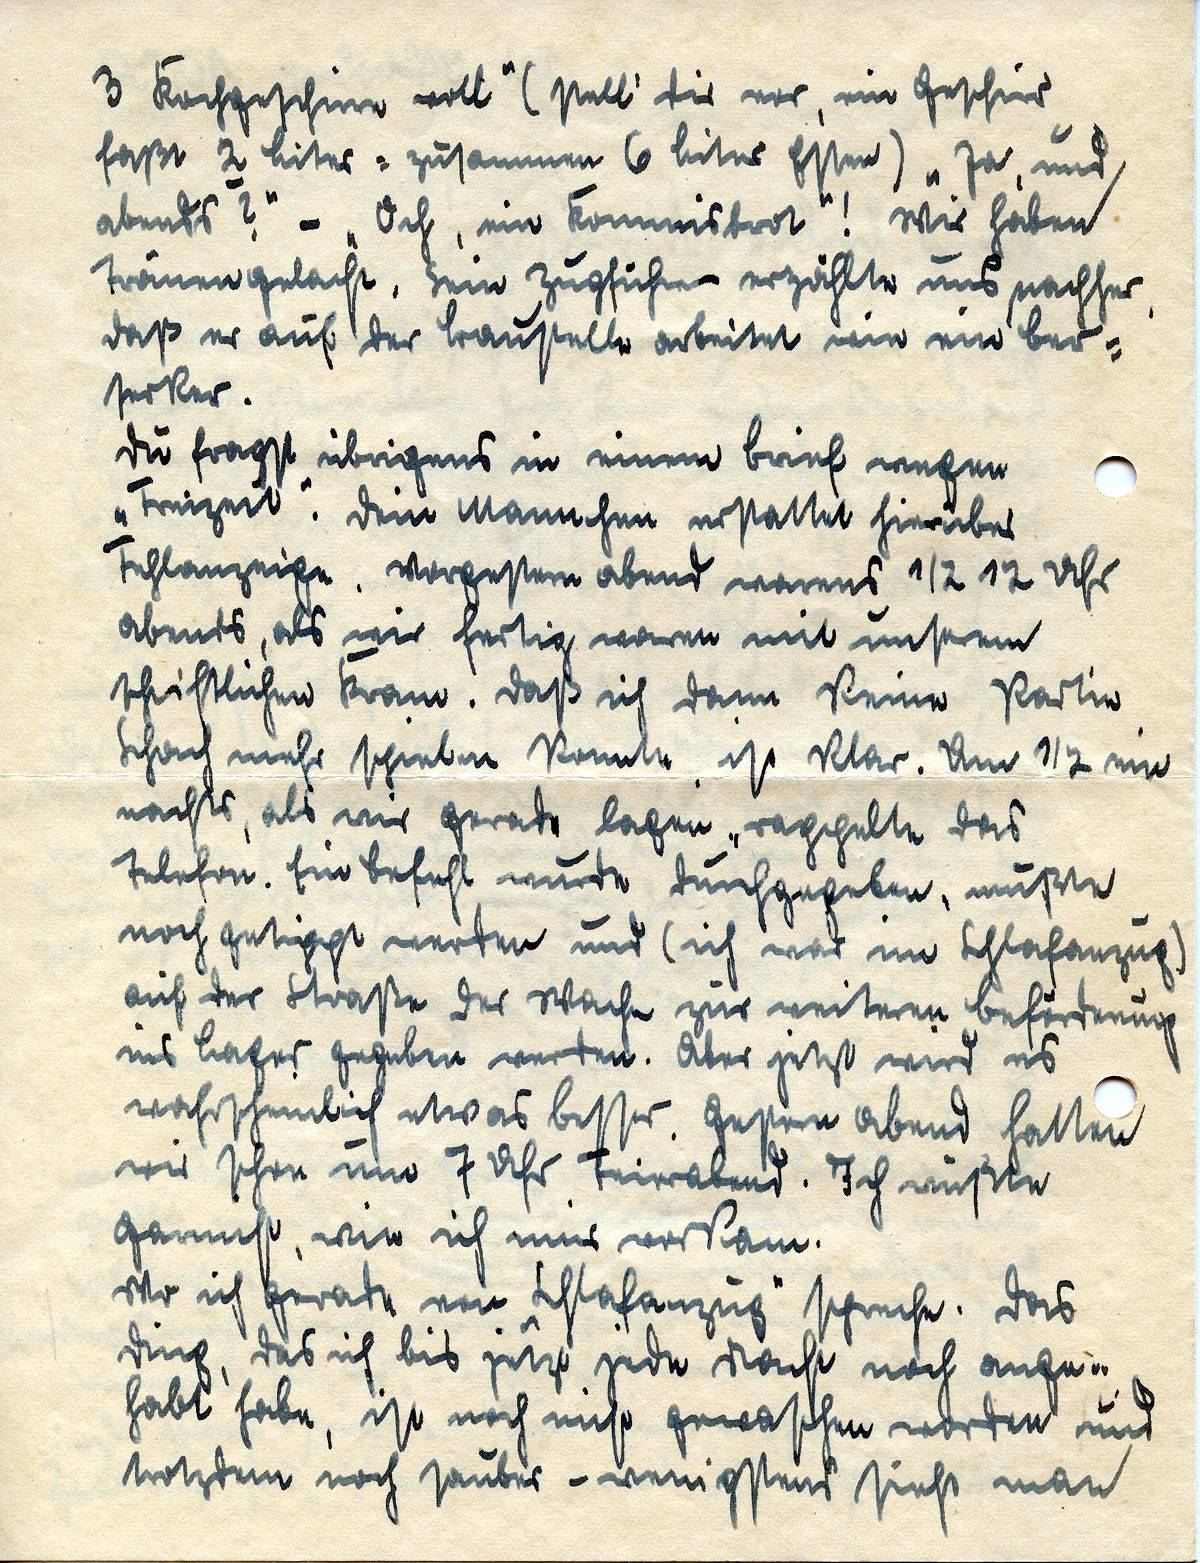 3 Kochgeschirre voll" (stell' dir vor, ein Geschirr
faßt 2 Liter = zusammen 6 Liter Essen) „Ja, und
abends?" – „Och, ein Kommisbrot"! Wir haben
Tränen gelacht. Sein Zugführer erzählte uns nachher,
daß er auf der Baustelle arbeitet wie ein Ber=
serker.
Du fragst übrigens in einem Brief wegen
„Freizeit". Dein Mannchen erstattet hierüber
Fehlanzeige. Vorgestern abend warens 1/2 12 Uhr
abends, als wir fertig waren mit unserem
schriftlichen Kram. Daß ich dann keine Partie
Schach mehr spielen konnte, ist klar. Um 1/2 ein
nachts, als wir gerade lagen, rappelte das
Telefon. Ein Befehl wurde durchgegeben, mußte
noch getippt werden und (ich war im Schlafanzug)
auf der Straße der Wache zur weiteren Beförderung
ins Lager gegeben werden. Aber jetzt wird es
wahrscheinlich etwas besser. Gestern Abend hatten
wir schon um 7 Uhr Feierabend. Ich wußte
garnicht, wie ich mir vorkam.
Wo ich gerade von „Schlafanzug" spreche. Das
Ding, das ich bis jetzt jede Nacht noch ange=
habt habe, ist noch nicht gewaschen worden und
trotzdem noch sauber – wenigstens sieht man